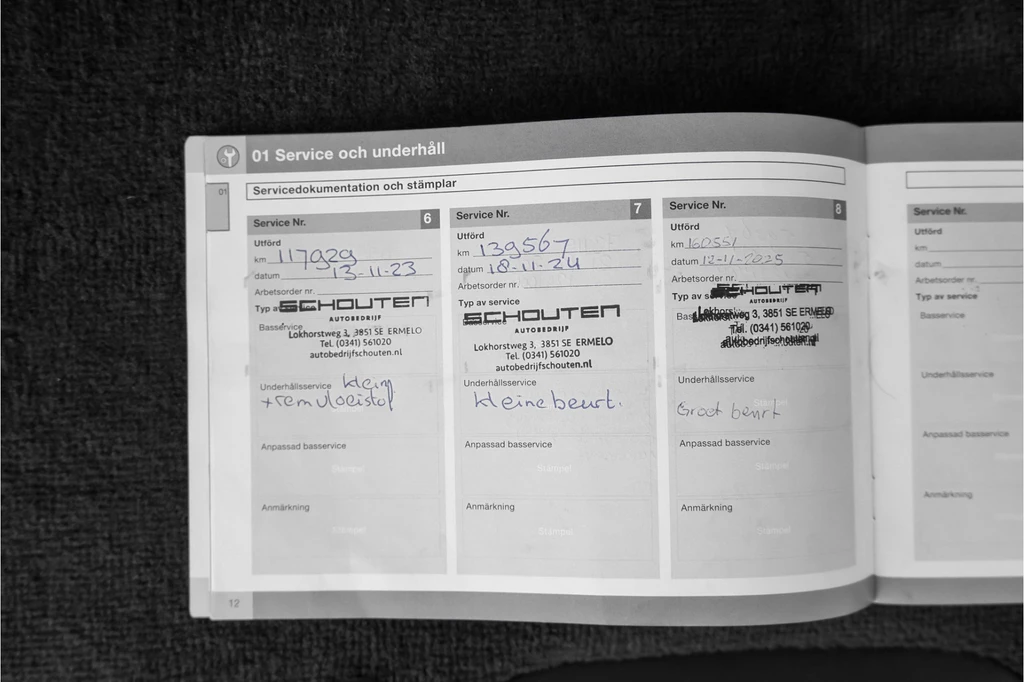 01 Service och underhåll
01
Servicedokumentation och stämplar
Service Nr. 6
Utförd
km 117929
datum 13-11-23
Arbetsorder nr.
Typ av service
SCHOUTEN
AUTOBEDRIJF
Basservice
Lokhorstweg 3, 3851 SE ERMELO
Tel. (0341) 561020
autobedrijfschouten.nl
Underhållsservice klein
+ remvloeistof
Stämpel
Anpassad basservice
Stämpel
Anmärkning
Stämpel
12
Service Nr. 7
Utförd
km 139567
datum 18-11-24
Arbetsorder nr.
Typ av service
SCHOUTEN
Basservice
AUTOBEDRIJF
Lokhorstweg 3, 3851 SE ERMELO
Tel. (0341) 561020
autobedrijfschouten.nl
Underhållsservice
kleine beurt.
Anpassad basservice
Stämpel
Anmärkning
Stämpel
Service Nr. 8
Utförd
km 160551
datum 12-11-2025
Arbetsorder nr.
Typ av service
SCHOUTEN
AUTOBEDRIJF
Lokhorstweg 3, 3851 SE ERMELO
Tel. (0341) 561020
autobedrijfschouten.nl
Underhållsservice
Stämpel
Groot beurt
Anpassad basservice
Stämpel
Anmärkning
Stämpel
Service Nr.
Utförd
km
datum
Arbetsorder nr.
Typ av service
Basservice
Underhållsservice
Anpassad basservice
Anmärkning